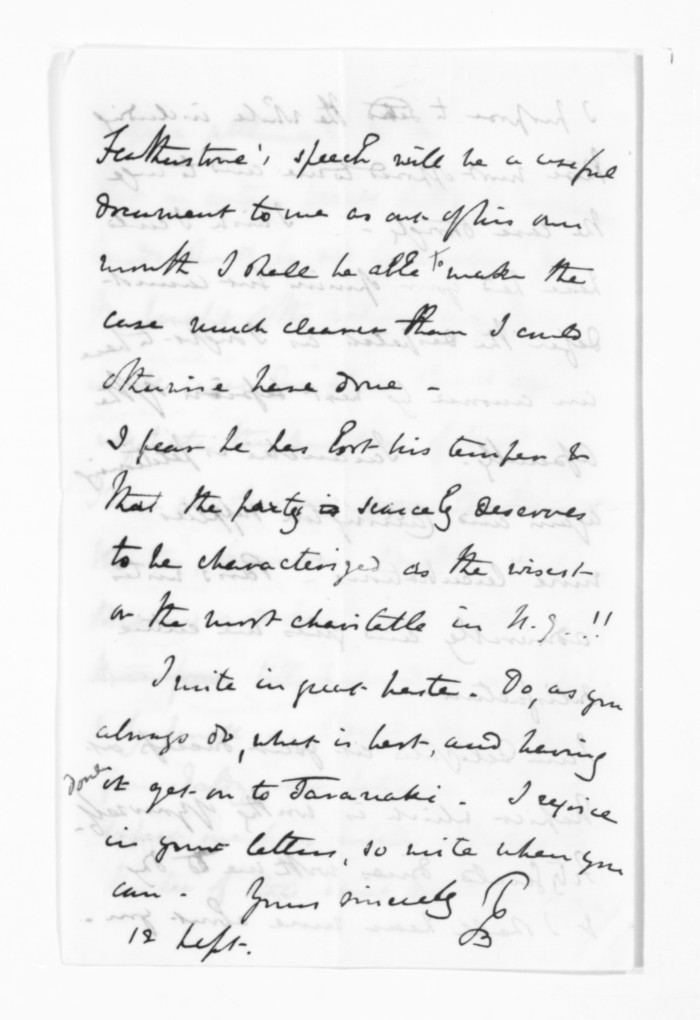 Featherstone's speech will be a useful
document to me as out of his own
mouth I shall be able to make the
case much clearer than I could
otherwise have done -
I fear he has lost his temper &
that the party is scarcely deserves
to be characterized as the wisest
or the most charitable in N.Z. !!
I write in great haste. Do, as you
always do, what is best, and having
done it get on to Taranaki. I rejoice
in your letters, so write when you
can. Yours sincerely
12 Sept.